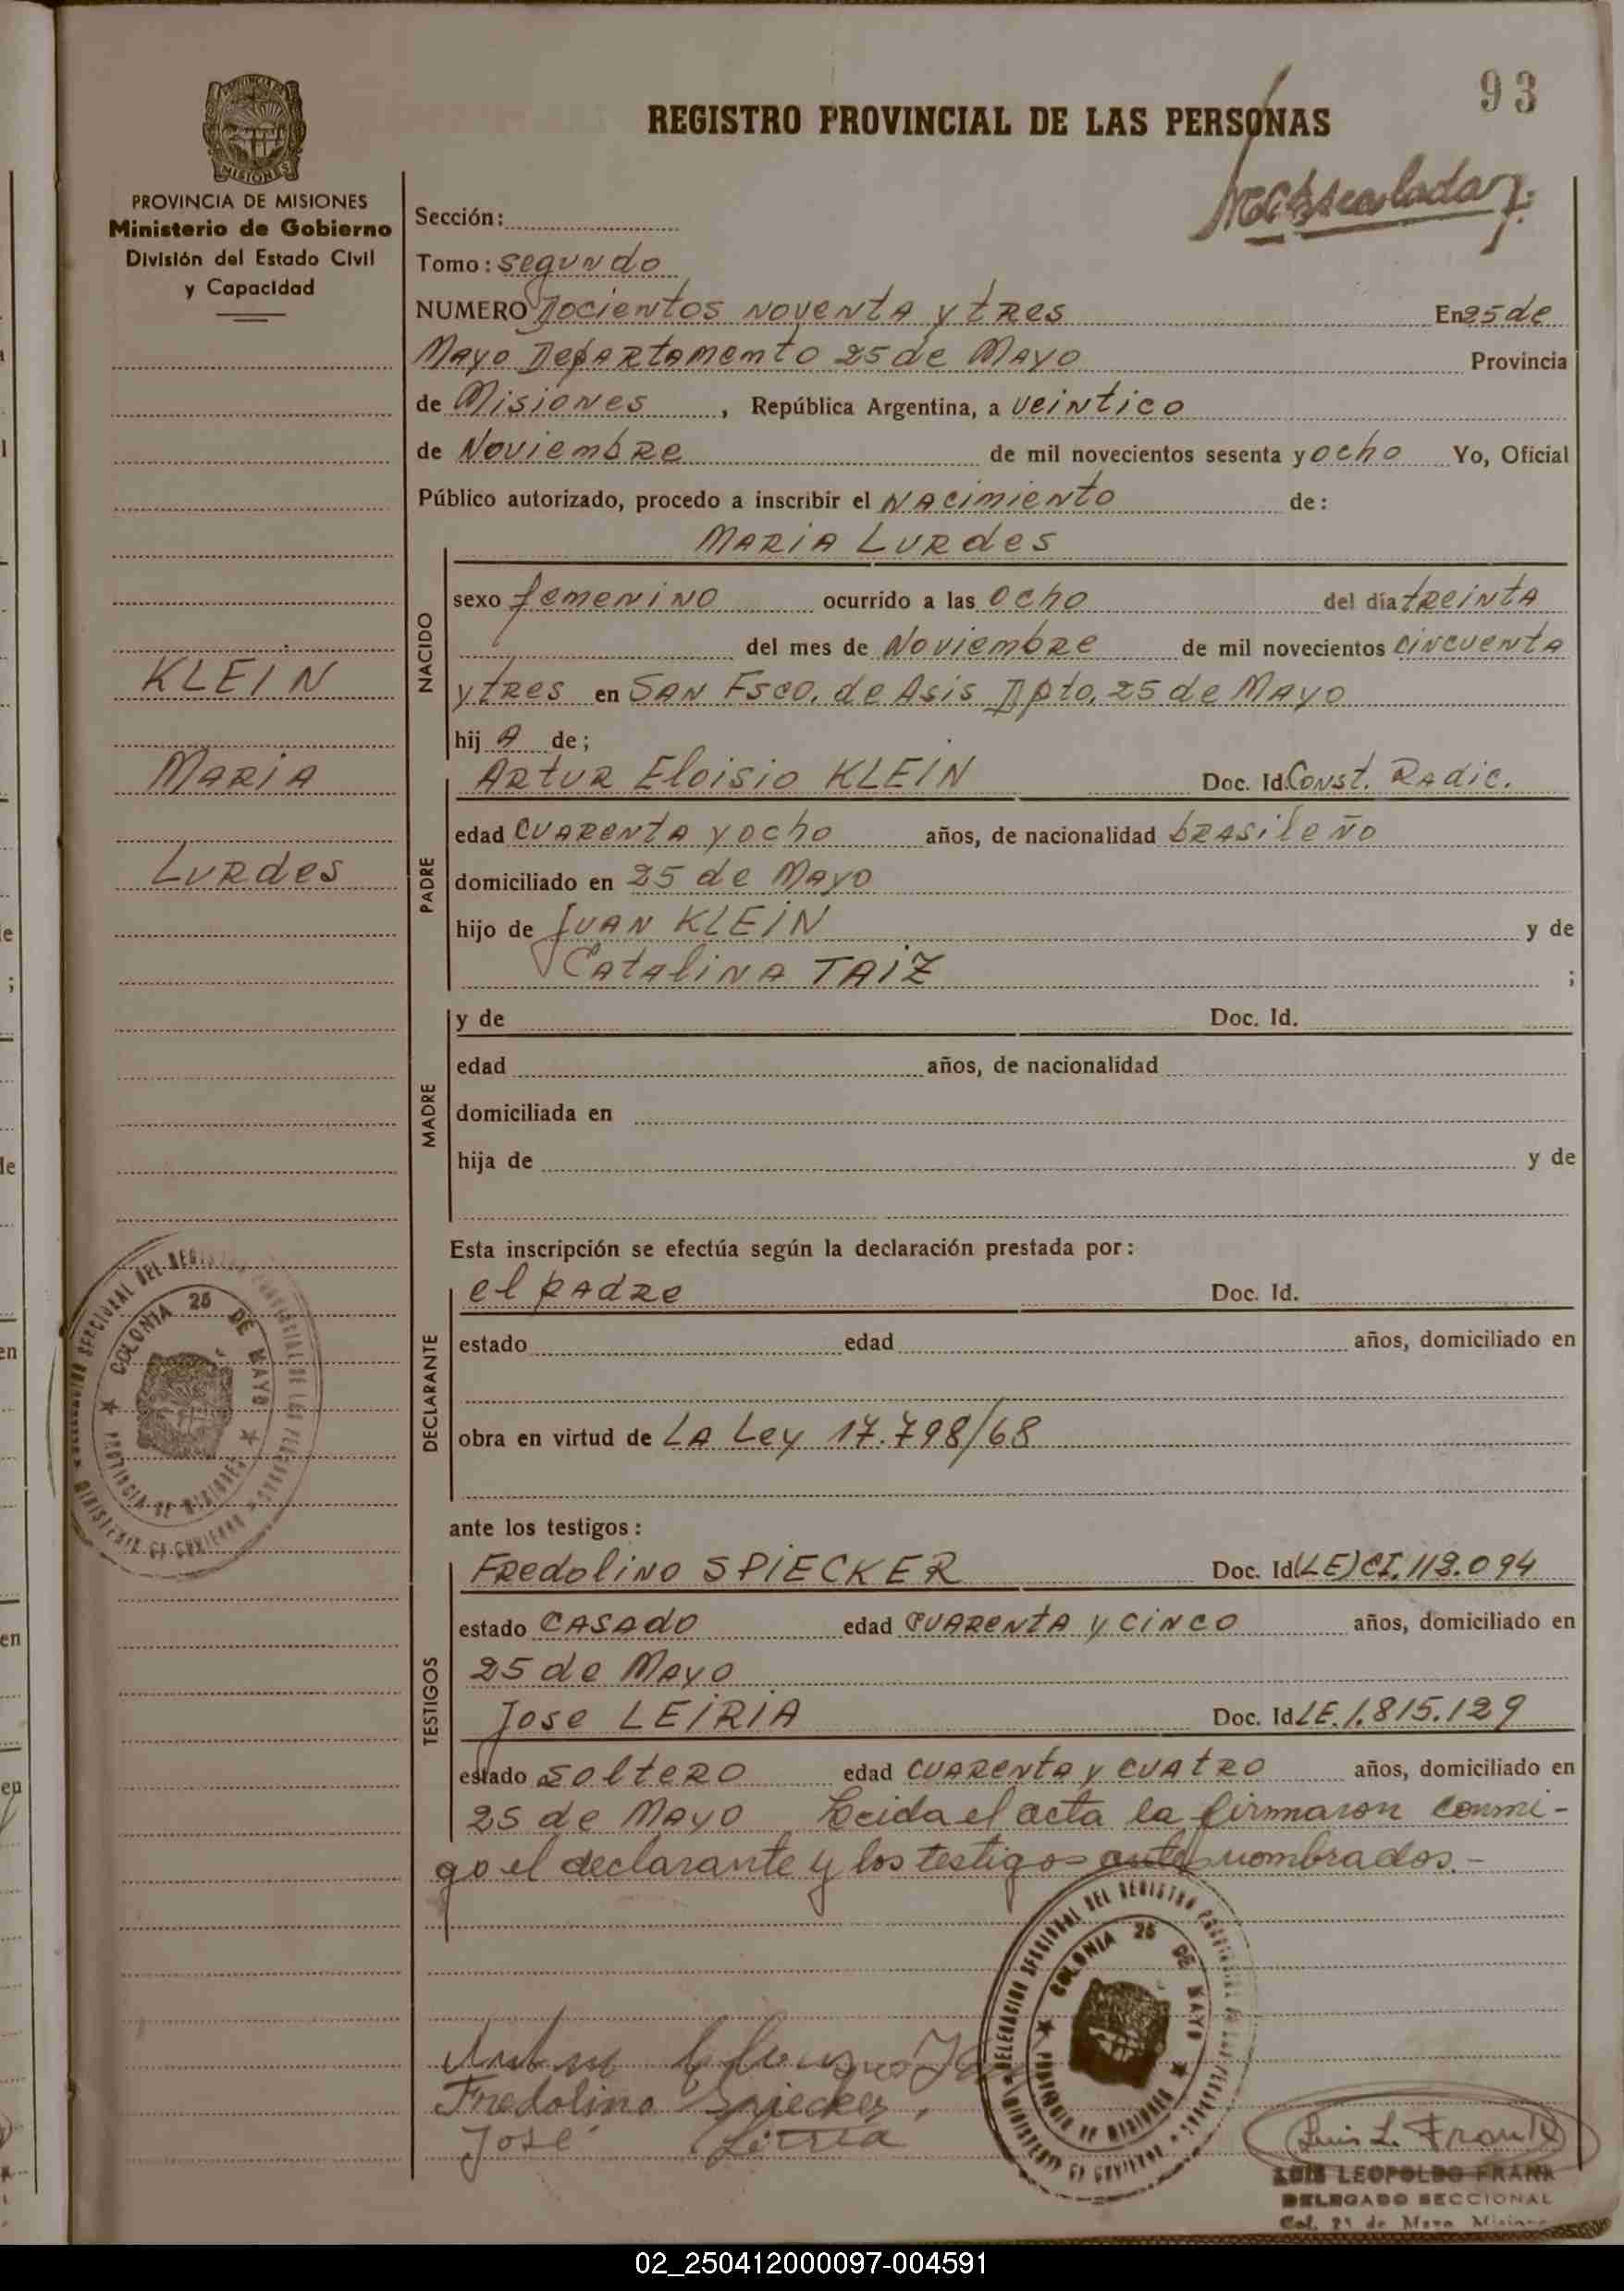 93
REGISTRO PROVINCIAL DE LAS PERSONAS
MISIONES
PROVINCIA DE MISIONES
Ministerio de Gobierno
División del Estado Civil
y Capacidad
Sección:
Tomo: segundo
NUMERO Docientos noventa y tres En 25 de
Mayo Departamento 25 de Mayo Provincia
de Misiones, República Argentina, a veintico
de Noviembre de mil novecientos sesenta y ocho Yo, Oficial
Público autorizado, procedo a inscribir el nacimiento de:
MARIA LURdes
NACIDO
sexo femenino ocurrido a las ocho del día treinta
del mes de Noviembre de mil novecientos cincuenta
y tres en San Fsco. de Asis Dpto. 25 de Mayo
hij A de;
KLEIN
MARIA
LURdes
PADRE
Artur Eloisio KLEIN Doc. Id. Const. Radic.
edad cuarenta y ocho años, de nacionalidad brasileño
domiciliado en 25 de Mayo
hijo de Juan KLEIN y de
Catalina TAIZ ;
MADRE
y de Doc. Id.
edad años, de nacionalidad
domiciliada en
hija de y de
Esta inscripción se efectúa según la declaración prestada por:
DECLARANTE
el padre Doc. Id.
estado edad años, domiciliado en
obra en virtud de La Ley 17.798/68
COLONIA 25 DE MAYO
PROVINCIA DE MISIONES
ante los testigos:
TESTIGOS
Fredolino SPIECKER Doc. Id (LE) CI. 113.094
estado casado edad cuarenta y cinco años, domiciliado en
25 de Mayo
Jose LEIRIA Doc. Id LE. 1.815.129
estado soltero edad cuarenta y cuatro años, domiciliado en
25 de Mayo Leida el acta la firmaron conmi-
go el declarante y los testigos ante nombrados.-
DELEGACION SECCIONAL DEL REGISTRO PROVINCIAL DE LAS PERSONAS
COLONIA 25 DE MAYO
PROVINCIA DE MISIONES
MINISTERIO DE GOBIERNO
Fredolino Spiecker
José Leiria
Luis L. Frank
LUIS LEOPOLDO FRANK
DELEGADO SECCIONAL
Col. 25 de Mayo Misiones
02_250412000097-004591